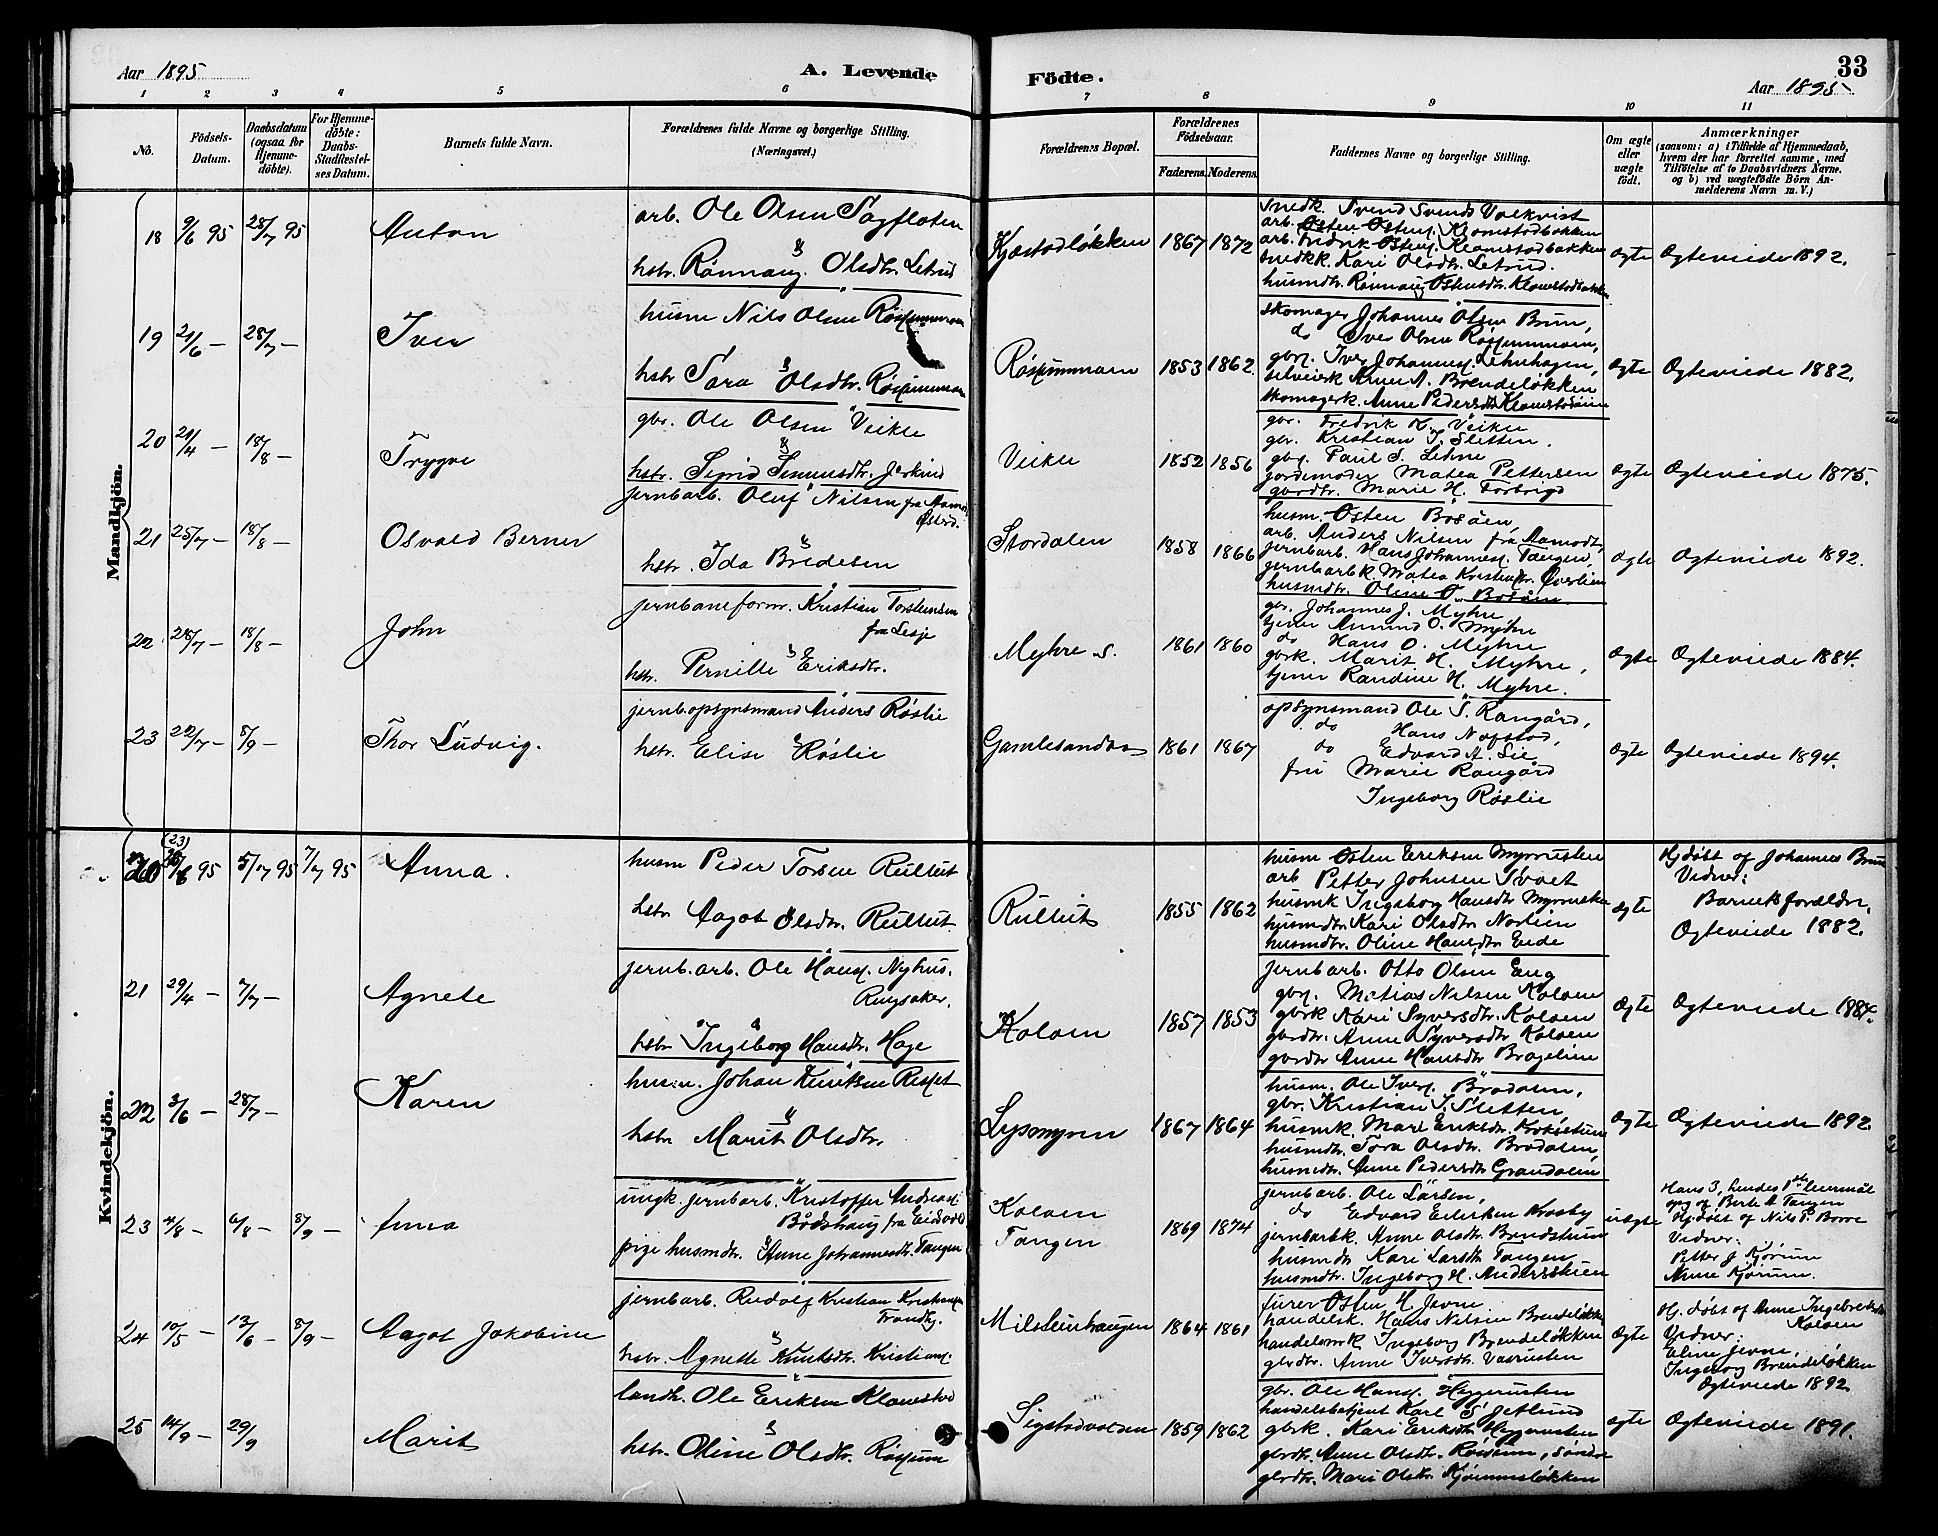 Aar 1895
A. Levende
Födte.
33
Aar 1895
1 2 3 4 5 6 7 8 9 10 11
No.
Födsels-Datum.
Daabsdatum (ogsaa for Hjemmedöbte).
For Hjemmedöbte: Daabs-Stadfæstelses Datum.
Barnets fulde Navn.
Forældrenes fulde Navne og borgerlige Stilling. (Næringsvei.)
Forældrenes Bopæl.
Forældrenes Födselsaar.
Faderens. Moderens.
Faddernes Navne og borgerlige Stilling.
Om ægte eller uægte födt.
Anmærkninger
(saasom: a) i Tilfælde af Hjemmedaab, hvem der har forrettet samme, med Tilföielse af to Daabsvidners Navne. og b) ved uægtefödte Börn Anmelderens Navn m. V.)
Mandkjön.
18 9/6 95 28/7 95 Anton
arb. Ole Olsen Sagfloten
&
hstr. Rønnaug Olsdtr. Letrud
Kjæstadløkken 1867 1872
snedk. Svend Svends
arb. Østen Østens. Klomstadbakken
arb. Fredrik Østens. Klomstadbakken
snedkk. Kari Olsdtr. Letrud.
husmdtr. Rønnaug Østensdtr. Klomstadbakken
ægte Ægteviede 1892.
19 21/6 – 28/7 – Iver
husm Nils Olsen
&
hstr Sara Olsdtr.
1853 1862
skomager Johannes Olsen Brun,
do Iver Olsen
gbrs. Iver Johanness.
Anne A. Brendeløkken
skomagerk. Anne Pedersdtr.
ægte Ægteviede 1882.
20 21/4 – 18/8 – Trygve
gbr. Ole Olsen Veikle
&
hstr. Sigrid Simensdtr. Jerkind
Veikle 1852 1856
gbr. Fredrik K. Veikle
gbr. Kristian I. Sletten.
gbrs. Paul S. Lehne
jordemoder Matea Pettersen
gbrdtr. Marie H. Forbrigd
ægte Ægteviede 1875.
21 25/7 – 18/8 – Osvald Berner
jernb.arb. Oluf Nilsen fra Aamot, Østerd.
&
hstr. Ida Bredesen
Stordalen 1858 1866
husm. Østen Bosåen,
arb. Anders Nilsen fra Aamodt,
jernbarb. Hans Johanness. Tangen,
jernbarbk. Matea Kristensdtr. Øverlien
husmdtr. Oline O. Bosåen.
ægte Ægteviede 1892.
22 28/7 – 18/8 – John
jernbaneform. Kristian Torstensen fra Lesje
&
hstr. Pernille Eriksdtr.
Myhre s. 1861 1860
gbr. Johannes J. Myhre
tjener Amund O. Myhre
do Hans O. Myhre
gbrk. Marit H. Myhre,
tjener Randine H. Myhre.
ægte Ægteviede 1884.
23 22/7 – 8/9 – Thor Ludvig.
jernb.opsynsmand Anders Røslie
&
hstr. Elise Røslie
1861 1867
opsynsmand Ole S. Rangård,
do Hans Nafstad,
do Edvard A. Lie
fru Marie Rangård
Ingeborg Røslie
ægte Ægteviede 1894.
Kvindekjön.
20 (23) 6 95 5/7 95 7/7 95 Anna.
husm Peder Torsen Rultut
&
hstr Aagot Olsdtr. Rultut
Rultut 1855 1862
husm Østen Eriksen Myrrusten
arb Petter Johnsen
husmk Ingeborg Hansdtr Myrrusten
husmdtr Kari Olsdtr Nordlien
husmdtr. Oline Hansdtr Eide
ægte
Hj.døbt af Johannes Brun
Vidner:
Barnets forældre.
Ægteviede 1882.
21 29/4 – 7/7 – Agnete
jernb.arb. Ole Hanss. Nyhus.
Ringsaker.
&
hstr Ingeborg Hansdtr. Hage
Koloen 1857 1853
jernb.arb. Otto Olsen Eng
gbrs. Matias Nilsen Koloen
gbrk Kari Syversdtr. Koloen
gbrdtr. Anne Syversdtr Koloen
gbrdtr Anne Hansdtr Bragelien
ægte Ægteviede 1884.
22 3/6 – 28/7 – Karen
husm. Johan Eriksen
&
hstr Marit Olsdtr.
Lysmyren 1867 1864
husm. Ole Ivers. Brodalen,
gbr. Kristian I. Sletten,
husmk. Mari Eriksdtr.
husmdtr. Tora Olsdtr. Brodalen,
husmdtr. Anne Pedersdtr Grandalen
ægte Ægteviede 1892.
23 4/8 – 6/8 – 8/9 – Anna
ungk. jernbarb. Kristoffer Andreass.
Bødshaug fra Eidsvold
&
pige husmdtr. Anne Johannesdtr. Tangen
Koloen
Tangen 1869 1874
jernbarb. Ole Larsen,
do Edvard Eilertsen Krosby
jernbarbk. Anne Olsdtr.
husmdtr Kari Larsdtr Tangen
husmdtr. Ingeborg H.
uægte
Hans 3, hendes 1ste leiermål
opg. af Berte A Tangen
Hj.døbt af Nils P. Borre
Vidner:
Petter J Kjørum
Anne Kjørum.
24 10/5 – 13/6 – 8/9 – Aagot Jakobine
jernbarb. Rudolf Kristian Kristians.
Trondhj.
&
hstr. Agnette Knutsdtr. Kristians.
Milsteinhaugen 1864 1861
furer Østen H. Jevne
handelsk. Hans Nilsen Brendeløkken
handelsmk Ingeborg Brendeløkken
gbrdtr. Anne Iversdtr.
ægte
Hj. døbt af Anne Ingebretsdtr
Koloen
Vidner:
Eline Jevne,
Ingeborg Brendeløkken
Ægteviede 1892
25 14/9 – 29/9 Marit
landh. Ole Eriksen Klomstad
&
hstr. Oline Olsdtr.
1859 1862
gbr. Ole Hanss. Heggerusten
handelsbetjent Karl S. Jetlund
gbrk. Kari Eriksdtr Heggerusten
gbrdtr. Anne Olsdtr. søndre
gbrdtr. Mari Olsdtr. Kjørumsløkken
ægte Ægteviede 1891.